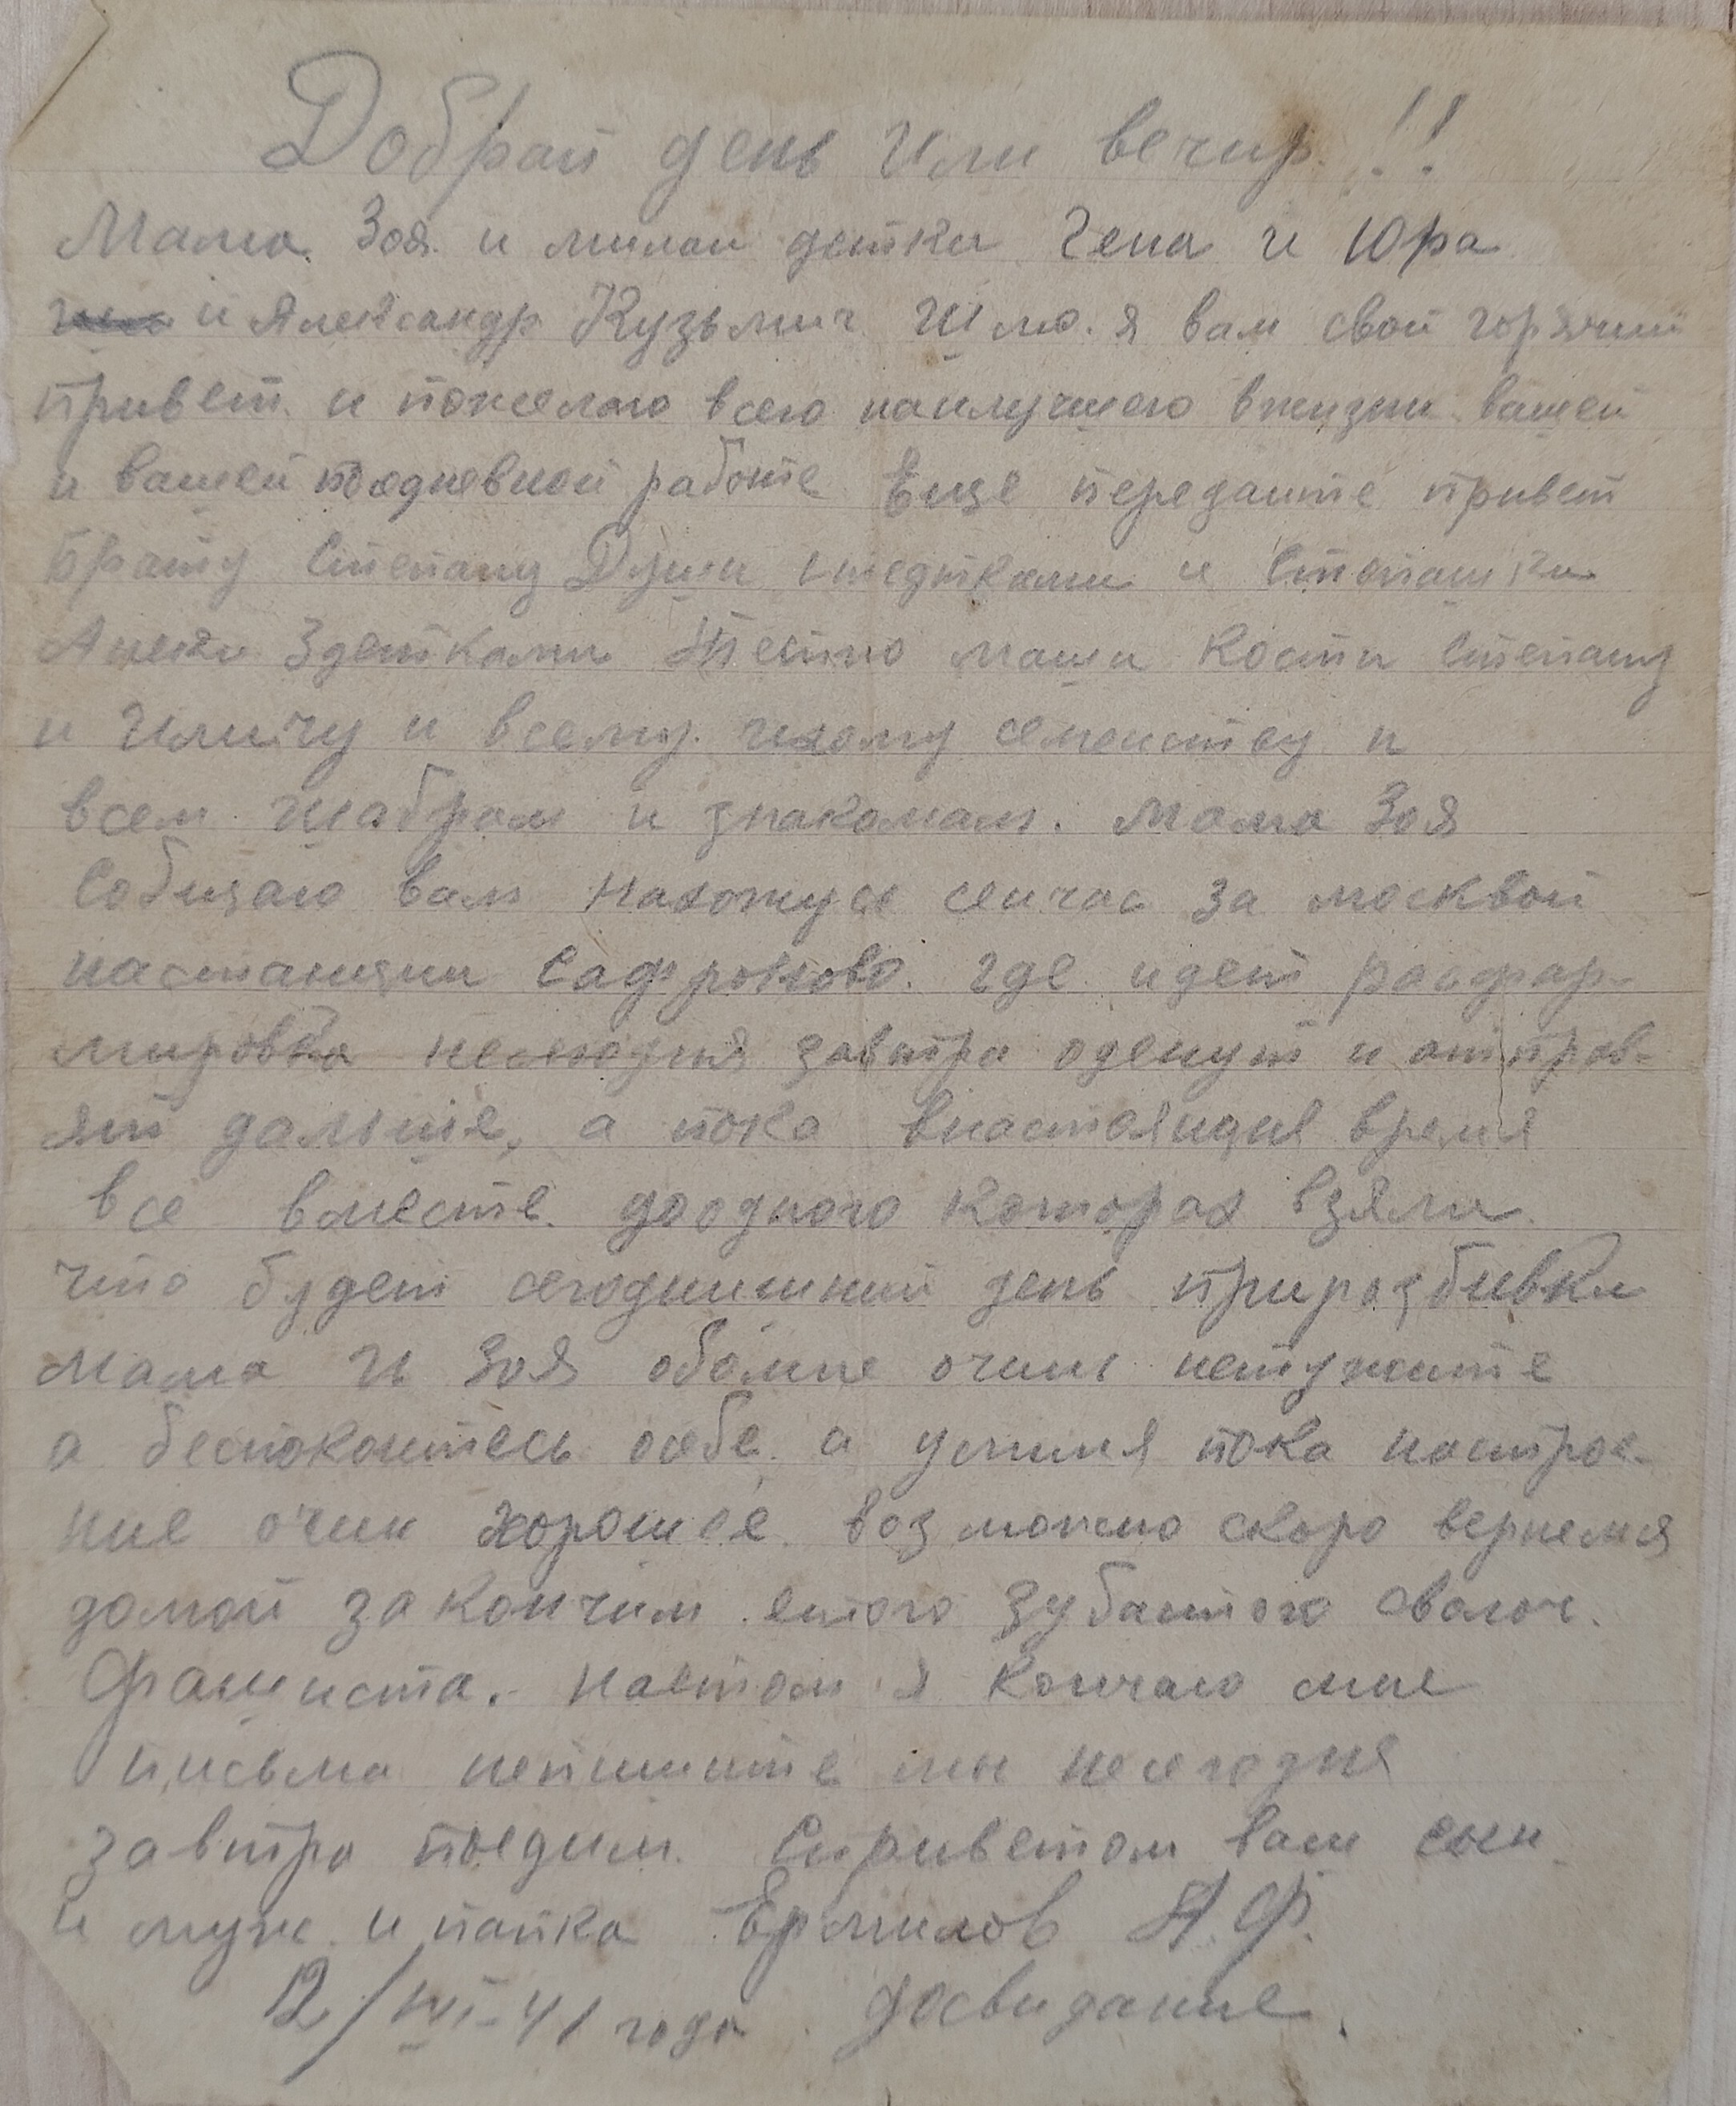 Добрай день или вечир.!!
Мама. Зоя. и милаи детки Гена и Юра
и Александр Кузьмич Шлю. я вам свой горячий
привет. и пожелаю всего наилучшего вжизни вашей
и вашей поедневной работе Еще передаите привет
Брату Степану Дуни сиедтками и Степашки
Здетками Маши Кости Степану
и Иличу и всему. ихому семеиству и
всем шабрам и знакомам. Мама Зоя
Собщаю вам нахожусе сеичас за москвой
настанции Сафроново. где идет расфар-
мировка несегодня завтра оденут и отправ-
ят дальше, а пока внастоящия время
все вместе. доодного которах взяли.
Что будет сегоднишний день приразбивки
мама и Зоя обомне очинь нетужите
а беспокоитесь осебе. а уминя пока настрое-
ние очин хорошее. возможно скоро вернемся
домой закончим. етого зубастого сволоч.
Фашиста. Наетом я кончаю мне
письма непишите мы несегодня
завтра поедим. Спиветом ваш сын
и муж. и папка Ермилов А.Ф.
12/VII-41 года. досвидание.